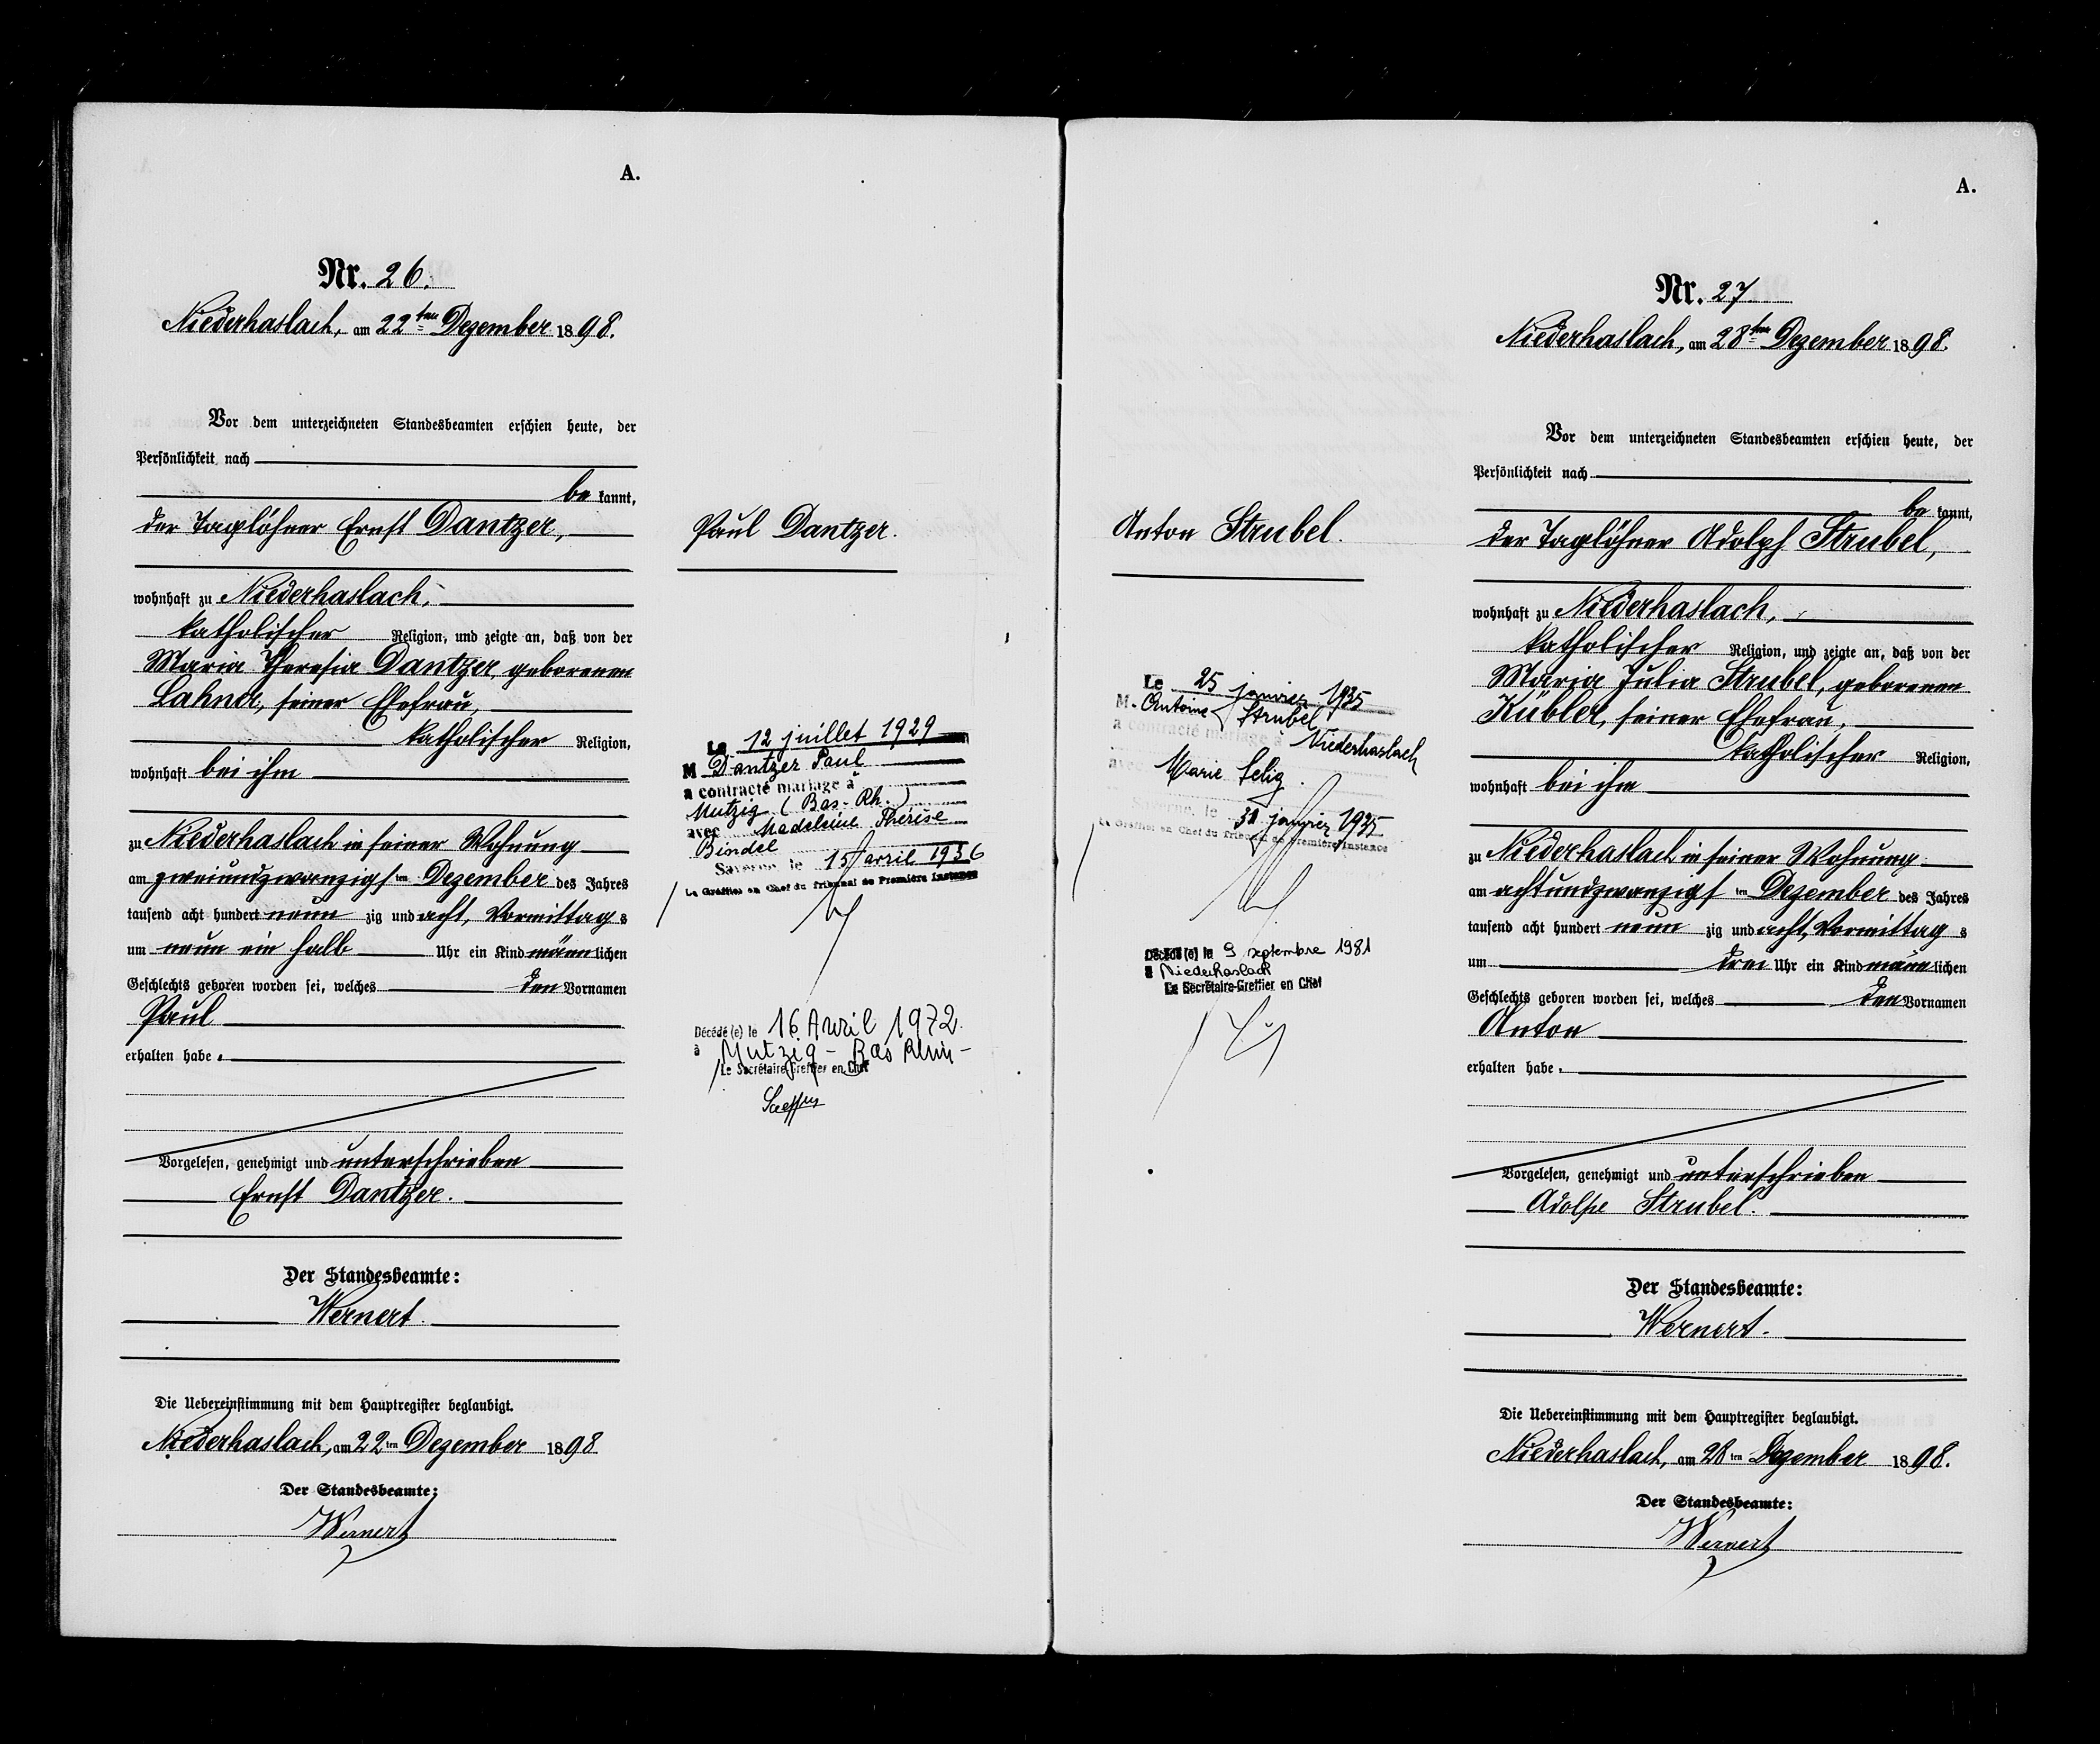 A.
Nr. 26.
Niederhaslach, am 22ten Dezember 1898.
Vor dem unterzeichneten Standesbeamten erschien heute, der
Persönlichkeit nach
bekannt,
der Taglöhner Ernst Dantzer,
wohnhaft zu Niederhaslach,
katholischer Religion, und zeigte an, daß von der
Maria Theresia Dantzer, geborenen
Lahner, seiner Ehefrau,
katholischer Religion,
wohnhaft bei ihm
zu Niederhaslach in seiner Wohnung
am zweiundzwanzigsten Dezember des Jahres
tausend acht hundert neunzig und acht, Vormittags
um neun ein halb Uhr ein Kind männlichen
Geschlechts geboren worden sei, welches den Vornamen
Paul
erhalten habe.
Vorgelesen, genehmigt und unterschrieben
Ernst Dantzer.
Der Standesbeamte:
Wernert.
Die Uebereinstimmung mit dem Hauptregister beglaubigt.
Niederhaslach, am 22ten Dezember 1898
Der Standesbeamte:
Wernert
Paul Dantzer.
Le 12 juillet 1929
M Dantzer Paul
a contracté mariage à
Mutzig (Bas-Rh.)
avec Madeleine Thérèse
Bindel
Saverne, le 15 avril 1936
Le Greffier en Chef du Tribunal de Première Instance
Décédé (e) le 16 Avril 1972.
à Mutzig - Bas Rhin -
Le Secrétaire-Greffier en Chef
Anton Strubel.
Le 25 janvier 1935
M. Antoine Strubel
a contracté mariage à Niederhaslach
avec Marie Selig.
Saverne, le 31 janvier 1935
Le Greffier en Chef du Tribunal de Première Instance
Décédé (e) le 9 septembre 1981
à Niederhaslach
Le Secrétaire-Greffier en Chef
A.
Nr. 27
Niederhaslach, am 28ten Dezember 1898.
Vor dem unterzeichneten Standesbeamten erschien heute, der
Persönlichkeit nach
bekannt,
der Taglöhner Adolph Strubel,
wohnhaft zu Niederhaslach,
katholischer Religion, und zeigte an, daß von der
Maria Julia Strubel, geborenen
Kübler, seiner Ehefrau,
katholischer Religion,
wohnhaft bei ihm
zu Niederhaslach in seiner Wohnung
am achtundzwanzigsten Dezember des Jahres
tausend acht hundert neunzig und acht, Vormittags
um drei Uhr ein Kind männlichen
Geschlechts geboren worden sei, welches den Vornamen
Anton
erhalten habe.
Vorgelesen, genehmigt und unterschrieben
Adolphe Strubel.
Der Standesbeamte:
Wernert.
Die Uebereinstimmung mit dem Hauptregister beglaubigt.
Niederhaslach, am 28ten Dezember 1898.
Der Standesbeamte:
Wernert